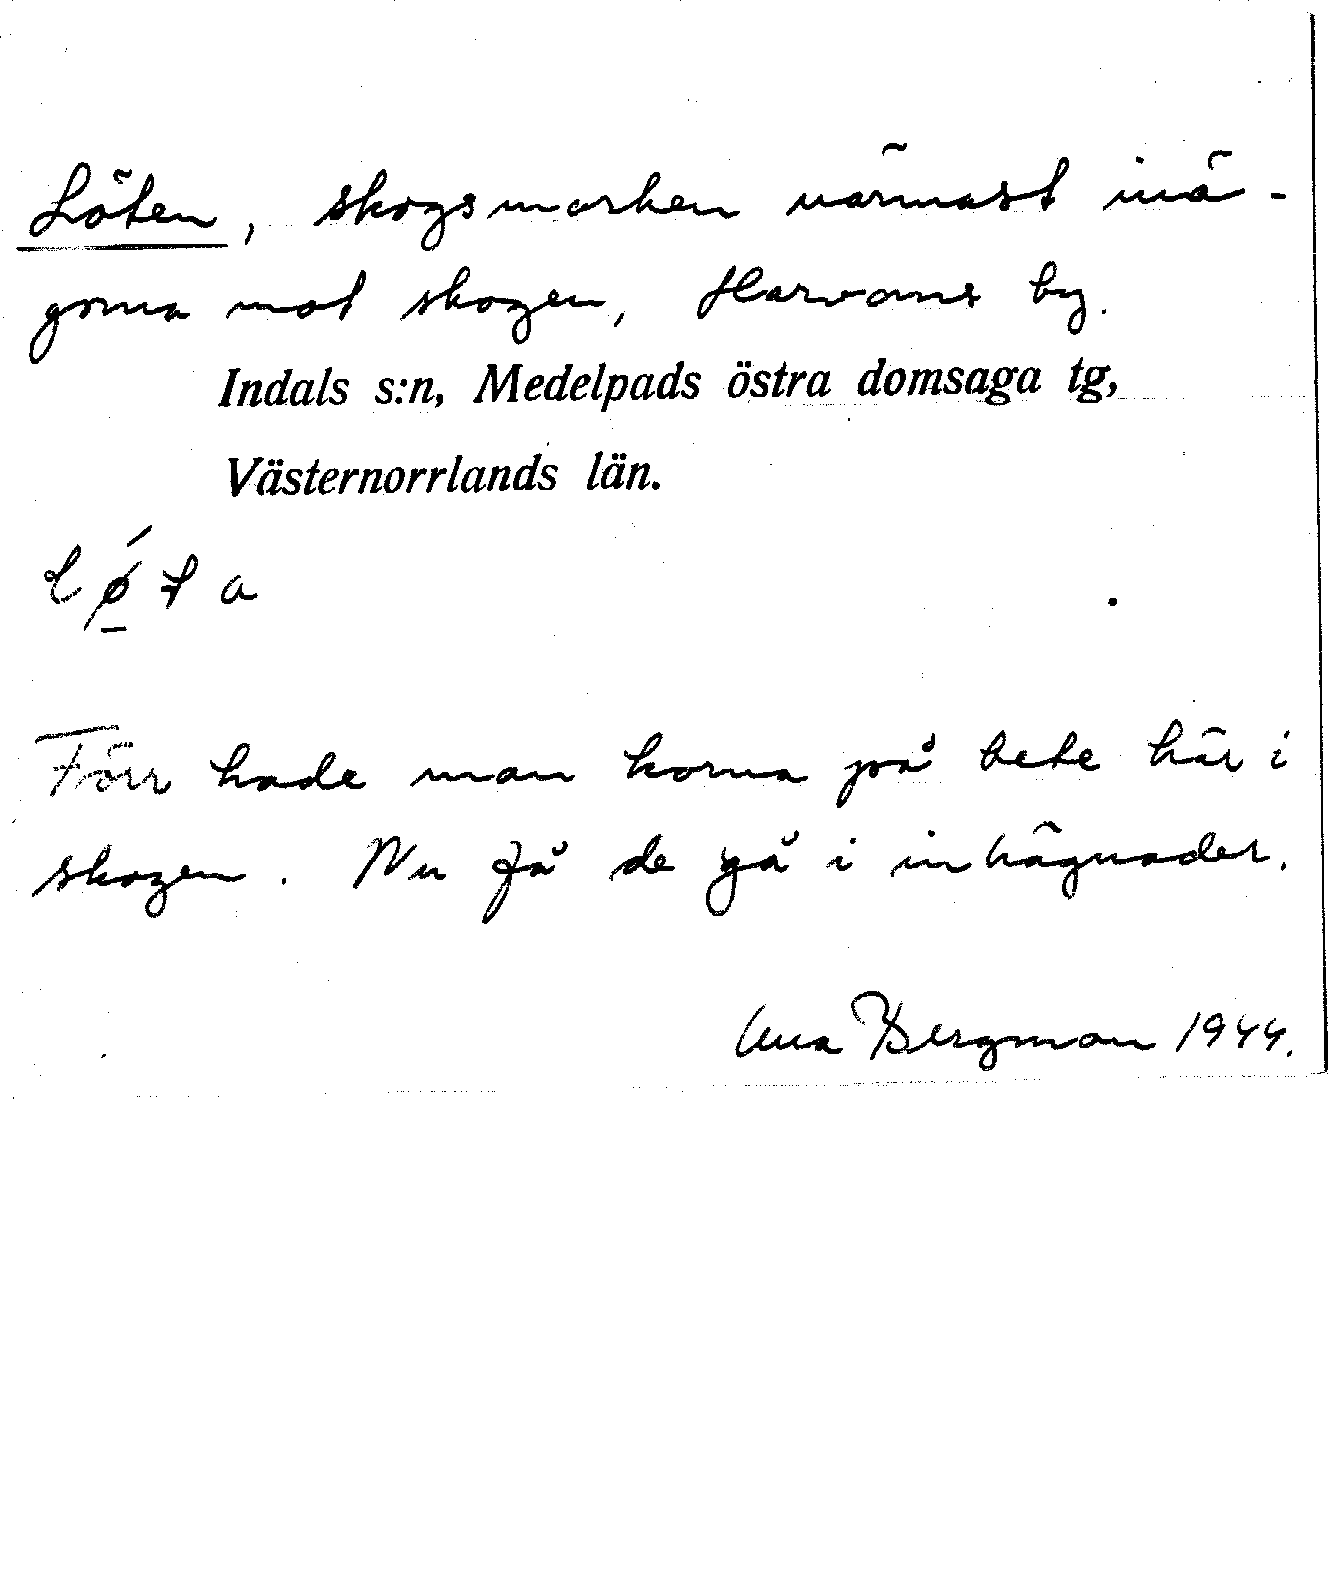 Löten, skogsmarken närmast inä-
gorna mot skogen, Harvoms by.
Indals s:n, Medelpads östra domsaga tg,
Västernorrlands län.
lǿ̱ta
Förr hade man korna på bete här i
skogen. Nu få de gå i inhägnader.
Anna Bergman 1944.